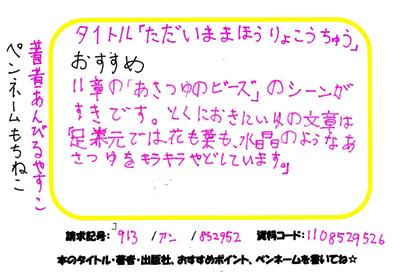 タイトル「ただいままほうりょこうちゅう」
おすすめ
11章の「あさつゆのビーズ」のシーンが
すきです。とくにおきにいりの文章は
足元では花も葉も、水晶のようなあ
さつゆをキラキラやどしています。」
著者あんびるやすこ
ペンネームもちねこ
請求記号: J913 /アン /852952 資料コード:1108529526
本のタイトル・著者・出版社、おすすめポイント、ペンネームを書いてね☆